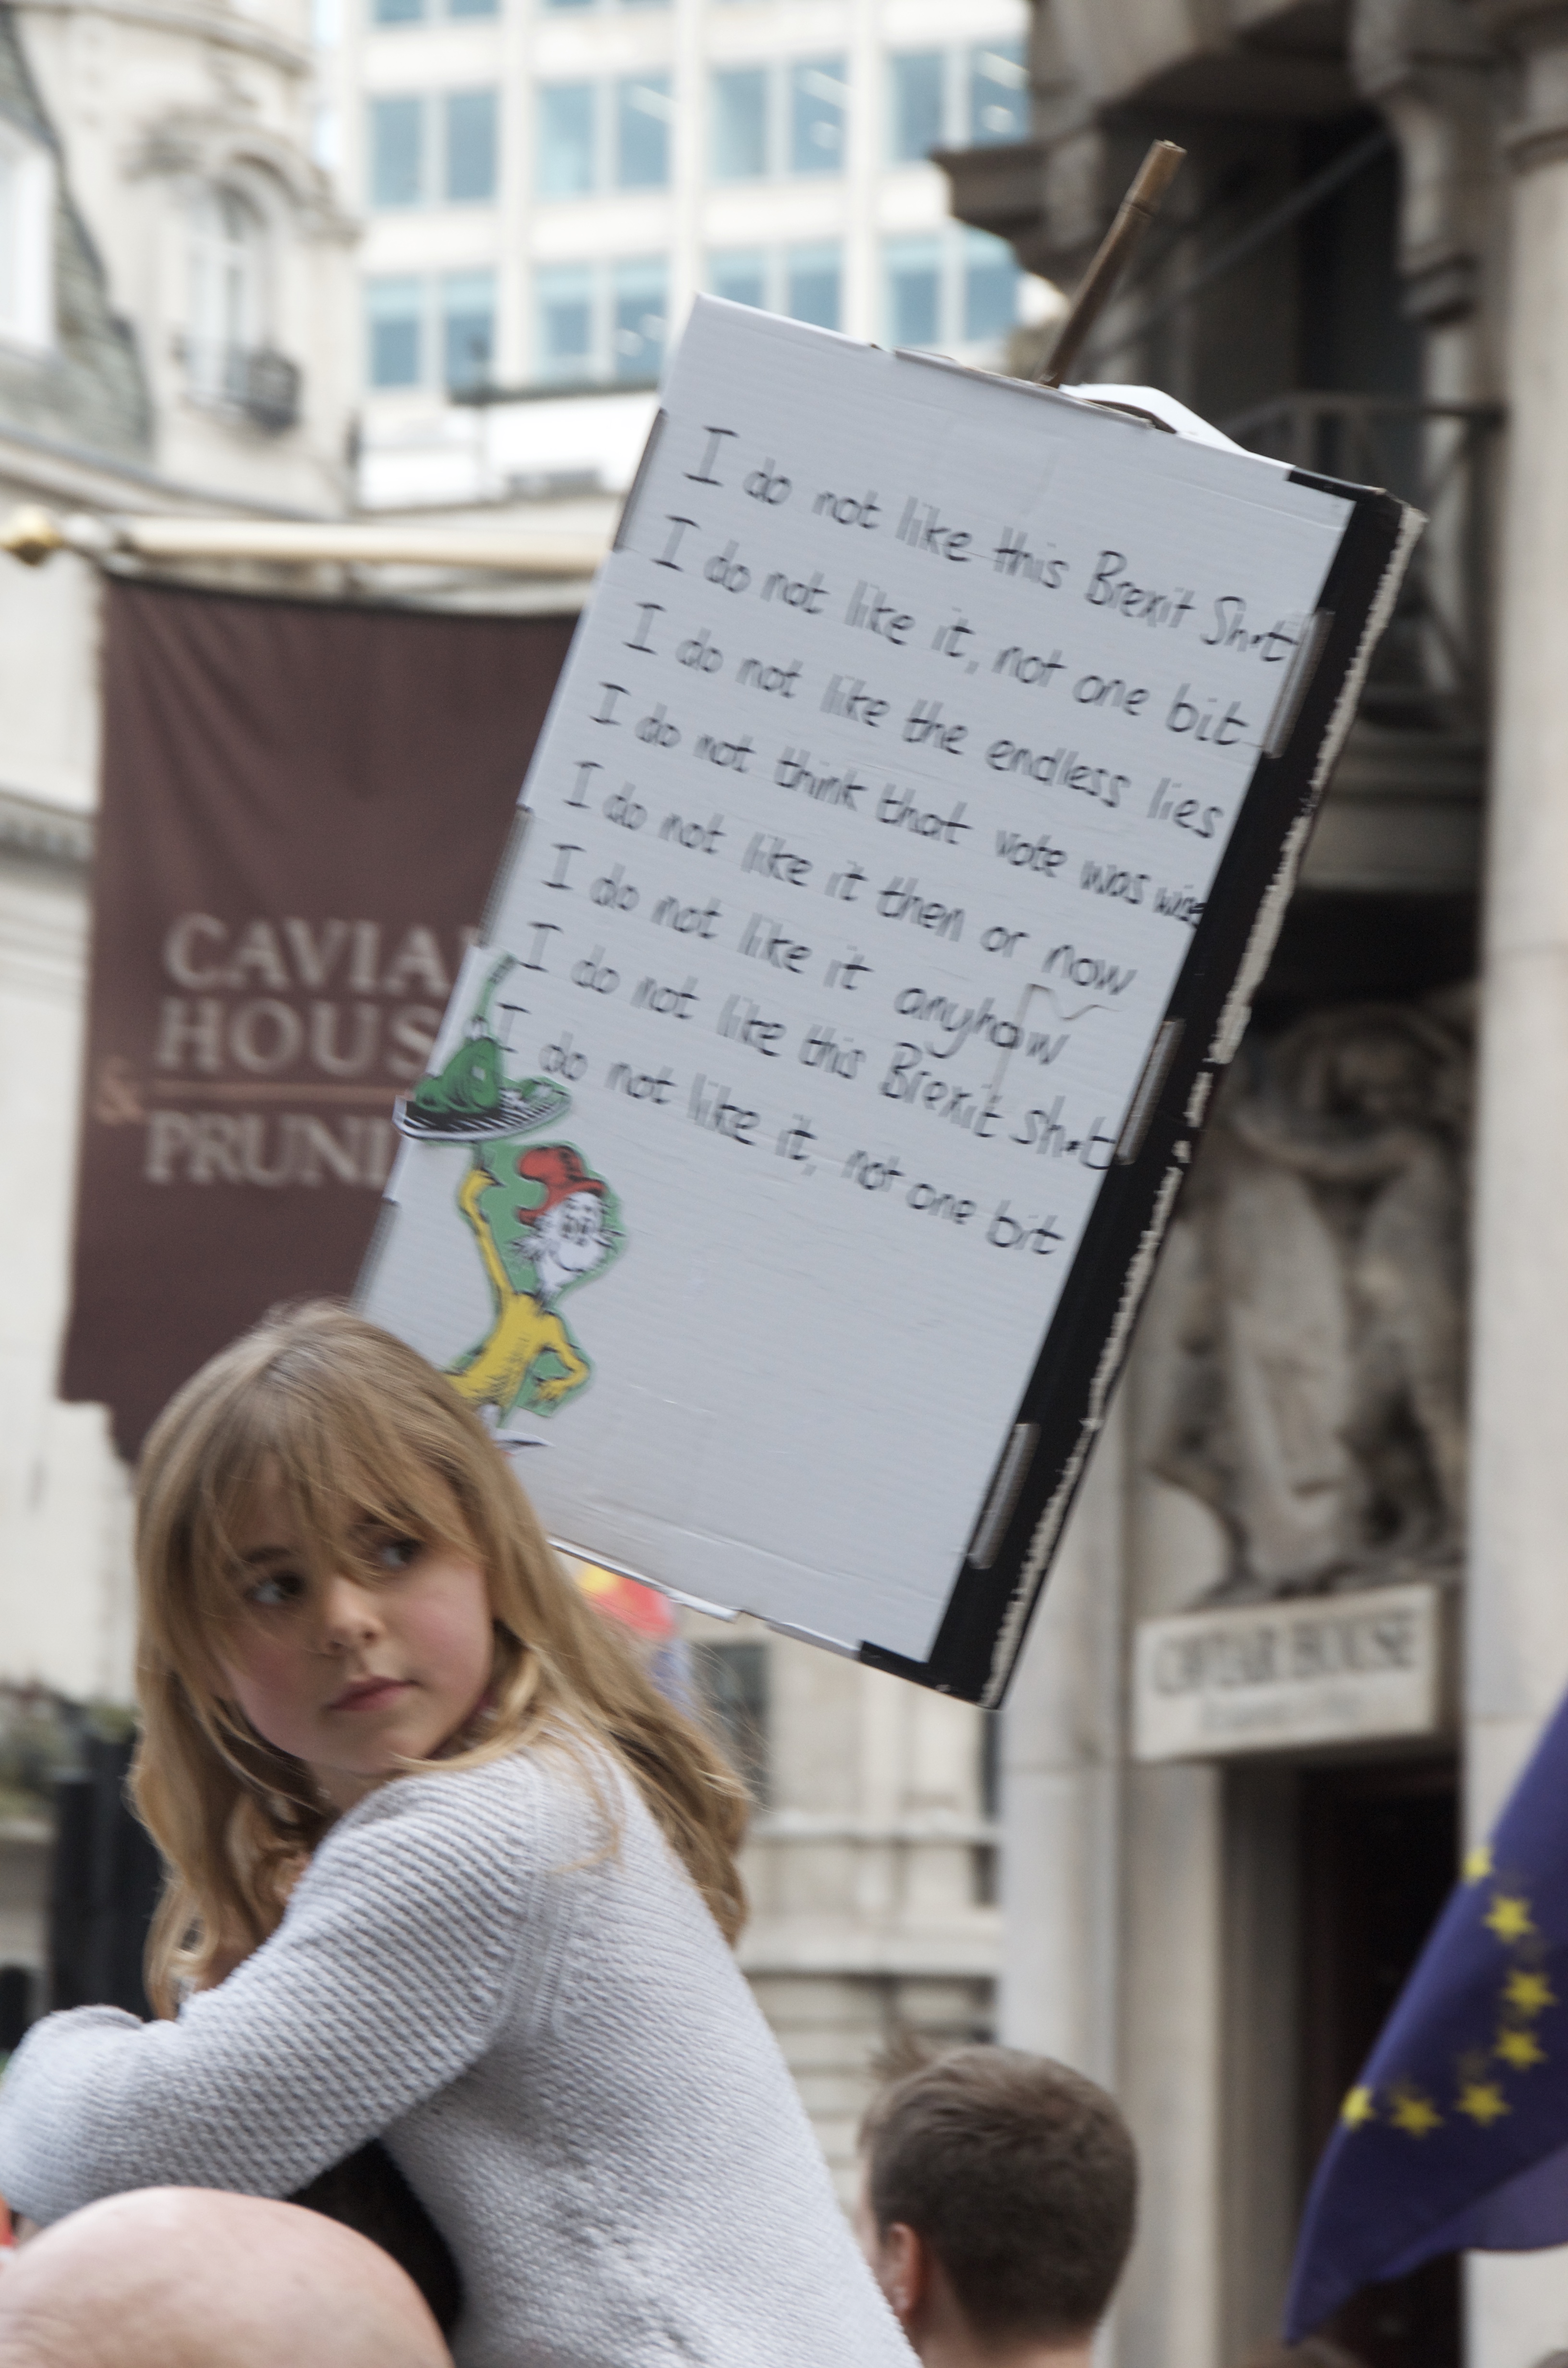 I do not like this Brexit Sh*t
I do not like it, not one bit
I do not like the endless lies
I do not think that vote was wise
I do not like it then or now
I do not like it anyhow
I do not like this Brexit Sh*t
I do not like it, not one bit
CAVIA
HOUS
&
PRUNI
HOUSE